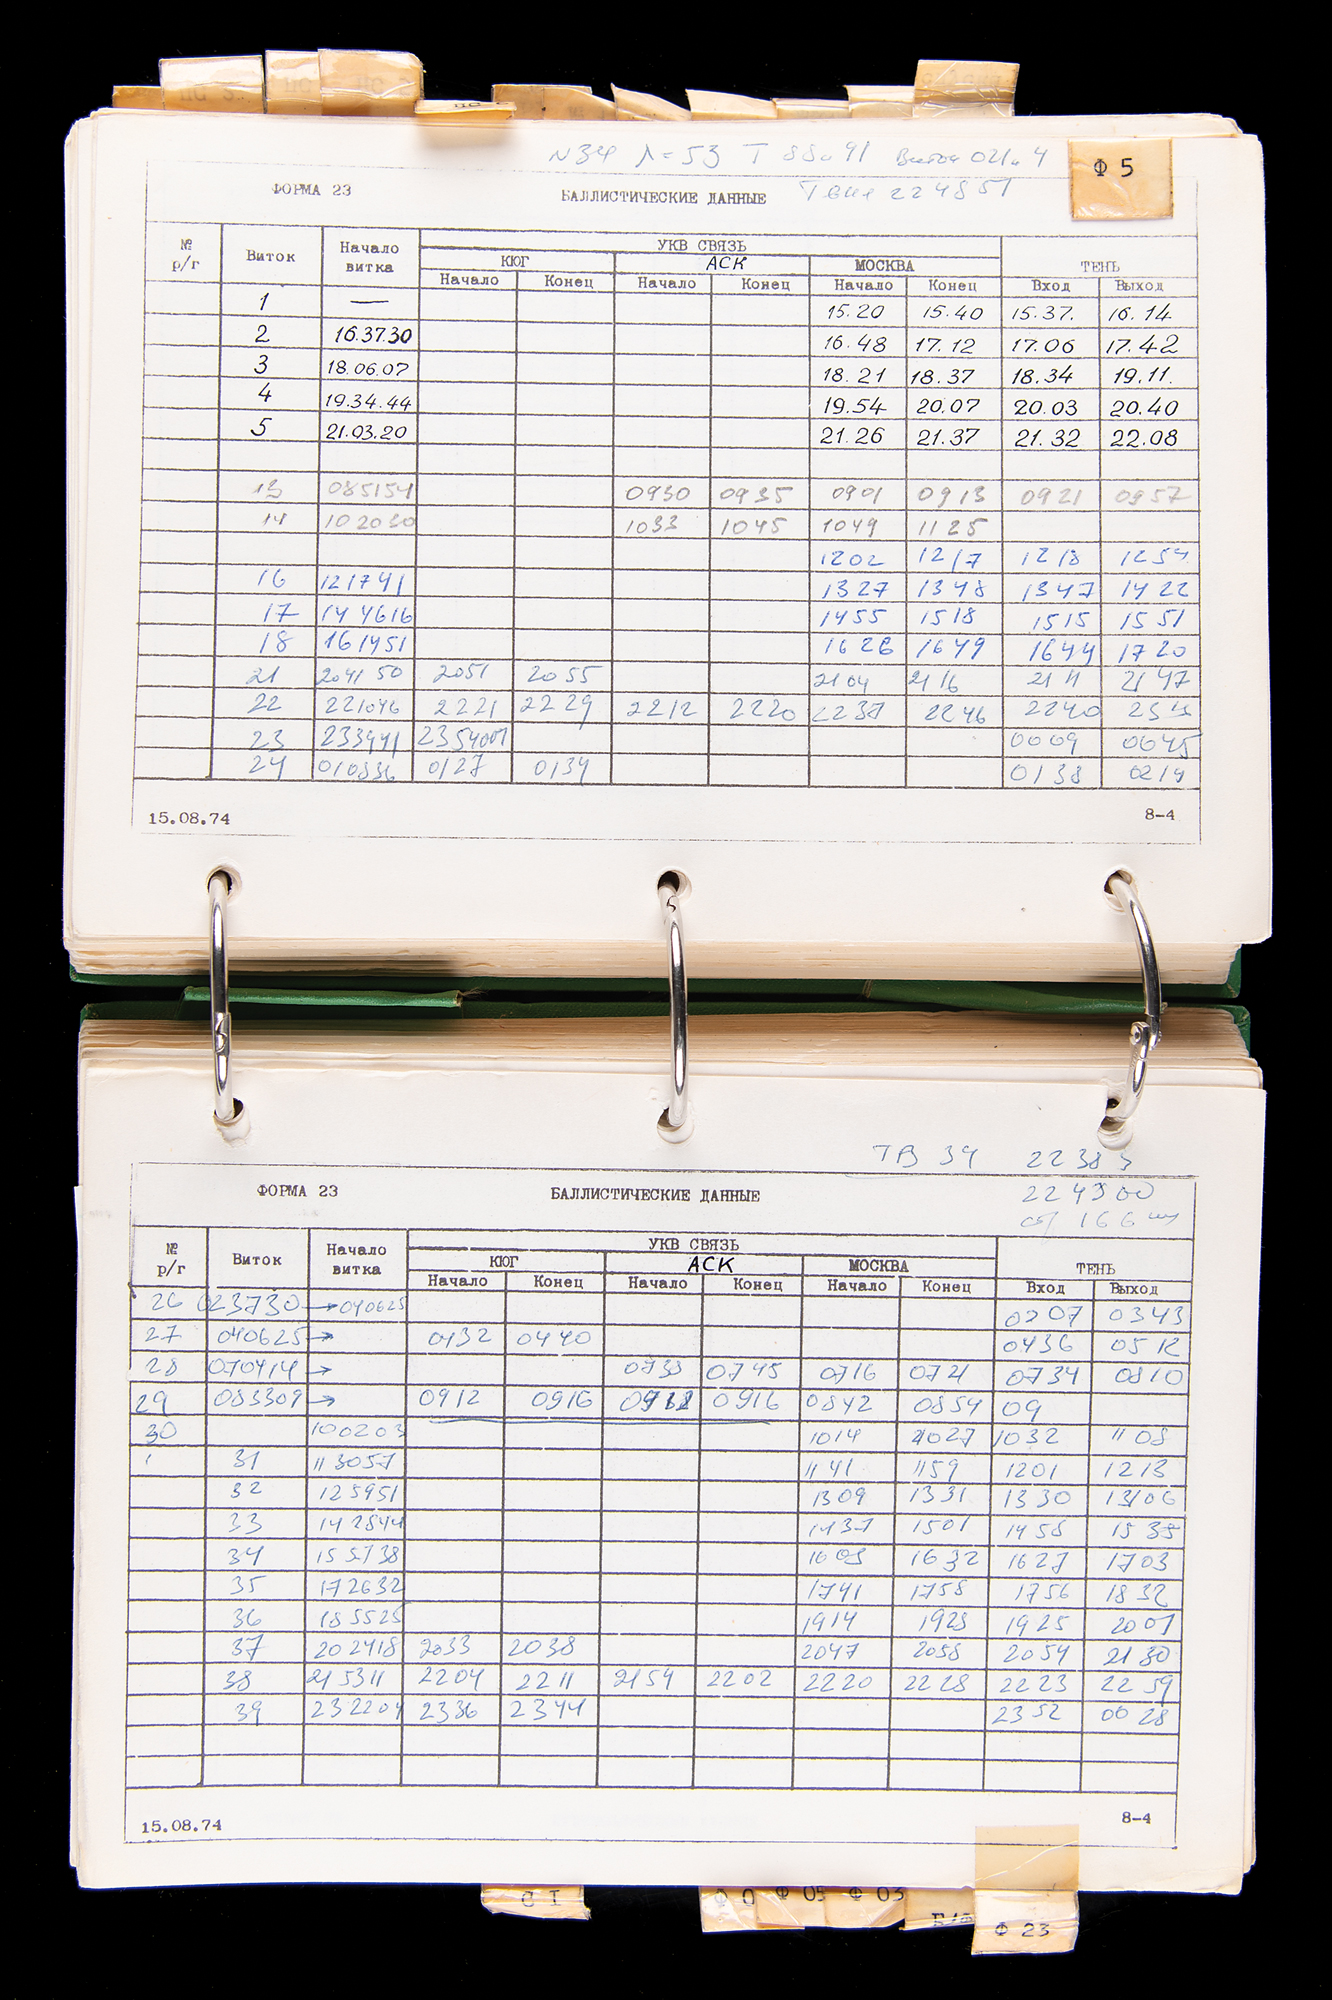 N34 Λ=53 T 88.41 Виток 021.4
ФОРМА 23 БАЛЛИСТИЧЕСКИЕ ДАННЫЕ 224851
Ф 5
№ р/г Виток Начало витка УКВ СВЯЗЬ ТЕНЬ
КЮГ АСК МОСКВА
Начало Конец Начало Конец Начало Конец Вход Выход
1 — 15.20 15.40 15.37. 16.14
2 16.37.30 16.48 17.12 17.06 17.42
3 18.06.07 18.21 18.37 18.34 19.11.
4 19.34.44 19.54 20.07 20.03 20.40
5 21.03.20 21.26 21.37 21.32 22.08
13 085154 0930 0935 0901 0913 0921 0957
14 102030 1033 1045 1049 1125
1202 1217 1218 1254
16 121741 1327 1348 1347 1422
17 144616 1455 1518 1515 1551
18 161451 1626 1649 1644 1720
21 204150 2051 2055 2104 2116 2111 2147
22 221046 2221 2229 2212 2220 2237 2246 2240
23 233941 0009 0045
24 010836 0127 0134 0138 0214
15.08.74 8-4
ТВ 34 2238
ФОРМА 23 БАЛЛИСТИЧЕСКИЕ ДАННЫЕ 224300
166
№ р/г Виток Начало витка УКВ СВЯЗЬ ТЕНЬ
КЮГ АСК МОСКВА
Начало Конец Начало Конец Начало Конец Вход Выход
26 023730 → 040625 0343
27 040625 → 0432 0440 0436 0512
28 070414 → 0733 0745 0716 0721 0734 0810
29 083309 → 0912 0916 0916 0842 0854 09
30 100203 1014 1027 1032 1108
31 113057 1141 1159 1201 1213
32 125951 1309 1331 1330 1306
33 142844 1437 1501 1458 1535
34 155738 1603 1632 1627 1703
35 172632 1741 1758 1756 1832
36 185525 1914 1928 1925 2001
37 202418 2033 2038 2047 2058 2054 2130
38 215311 2204 2211 2154 2202 2220 2228 2223 2259
39 232204 2336 2344 2352 0028
15.08.74 8-4
Ф 0 Ф 05 Ф 03
Ф 23